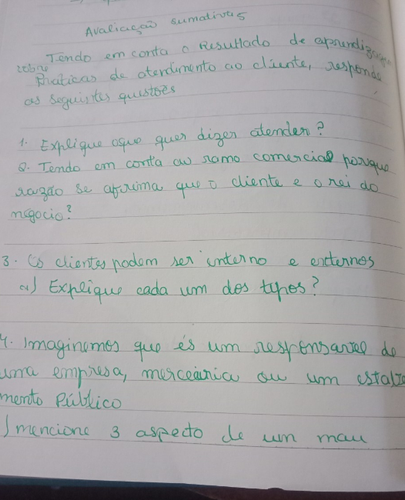 Avaliação sumativa 5
Tendo em conta o Resultado de aprendizagem
sobre
Práticas de atendimento ao cliente, responda
as seguintes questões
1. Explique oque quer dizer atender?
2. Tendo em conta ao ramo comercial porque
razão se afirma que o cliente e o rei do
negocio?
3. Os clientes podem ser interno e externos
a) Explique cada um dos tipos?
4. Imaginemos que és um responsavel de
uma empresa, mercearia ou um estable
mento Público
) mencione 3 aspecto de um mau